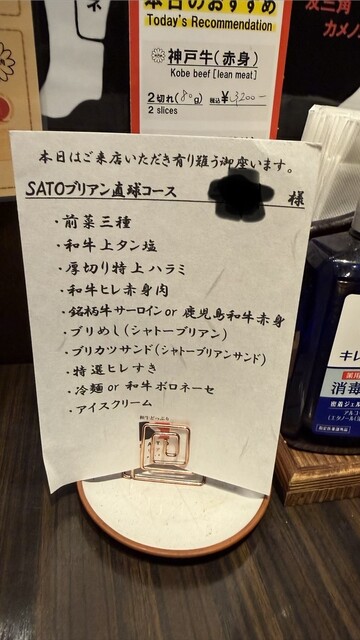 ネ
本日のおすすめ
Today's Recommendation
神戸牛(赤身)
Kobe beef [lean meat]
2切れ(80g) 税込¥3,200-
2 slices
友三角
カメノ
本日はご来店いただき有り難う御座います。
SATOブリアン直球コース 様
・前菜三種
・和牛上タン塩
・厚切り特上ハラミ
・和牛ヒレ赤身肉
・銘柄牛サーロイン or 鹿児島和牛赤身
・ブリめし(シャトーブリアン)
・ブリカツサンド(シャトーブリアンサンド)
・特選ヒレすき
・冷麺 or 和牛ボロネーセ
・アイスクリーム
キレ
消毒
密着ジェル
アルコ
(エタノール(
指定医薬部外品